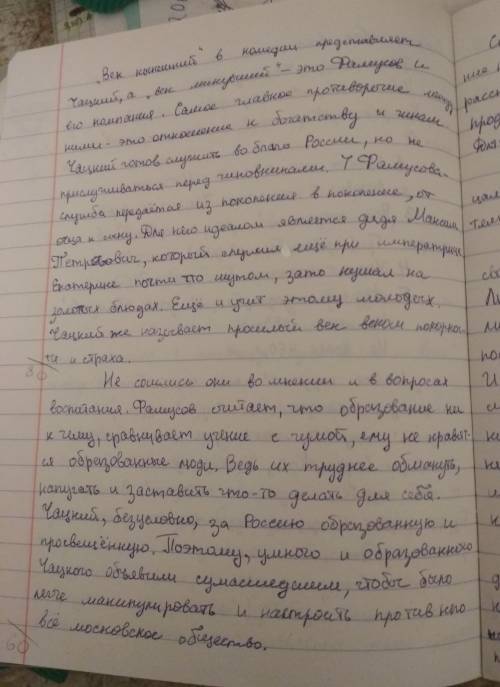 "Век нынешний" в комедии представляет
Чацкий, а "век минувший" – это Фамусов и
его компания. Самое главное противоречие между
ними - это отношение к богатству и чинам
Чацкий готов служить во благо России, но не
прислуживаться перед чиновниками. У Фамусова
служба передаётся из поколения в поколение, от
отца к сыну. Для него идеалом является дядя Максим
Петрович, который служил ещё при императрице
Екатерине почти что шутом, зато кушал на
золотых блюдах. Ещё и учит этому молодых.
Чацкий же называет прошлый век веком покорнос
ти и страха.
80
Не сошлись они во мнении и в вопросах
воспитания. Фамусов считает, что образование ни
к чему, сравнивает учение с чумой, ему не нравят-
ся образованные люди. Ведь их труднее обмануть,
напугать и заставить что-то делать для себя.
Чацкий, безусловно, за Россию образованную и
просвещённую. Поэтому, умного и образованного
Чацкого объявили сумасшедшим, чтобы было
легче манипулировать и настроить против него
всё московское общество.
60